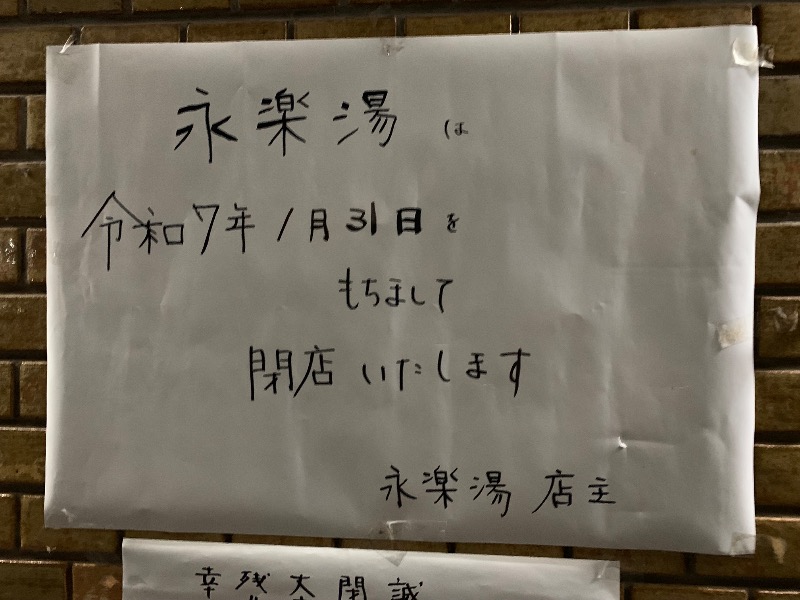 永楽湯は
令和7年1月31日を
もちまして
閉店いたします
永楽湯 店主
誠
閉
大
残
幸